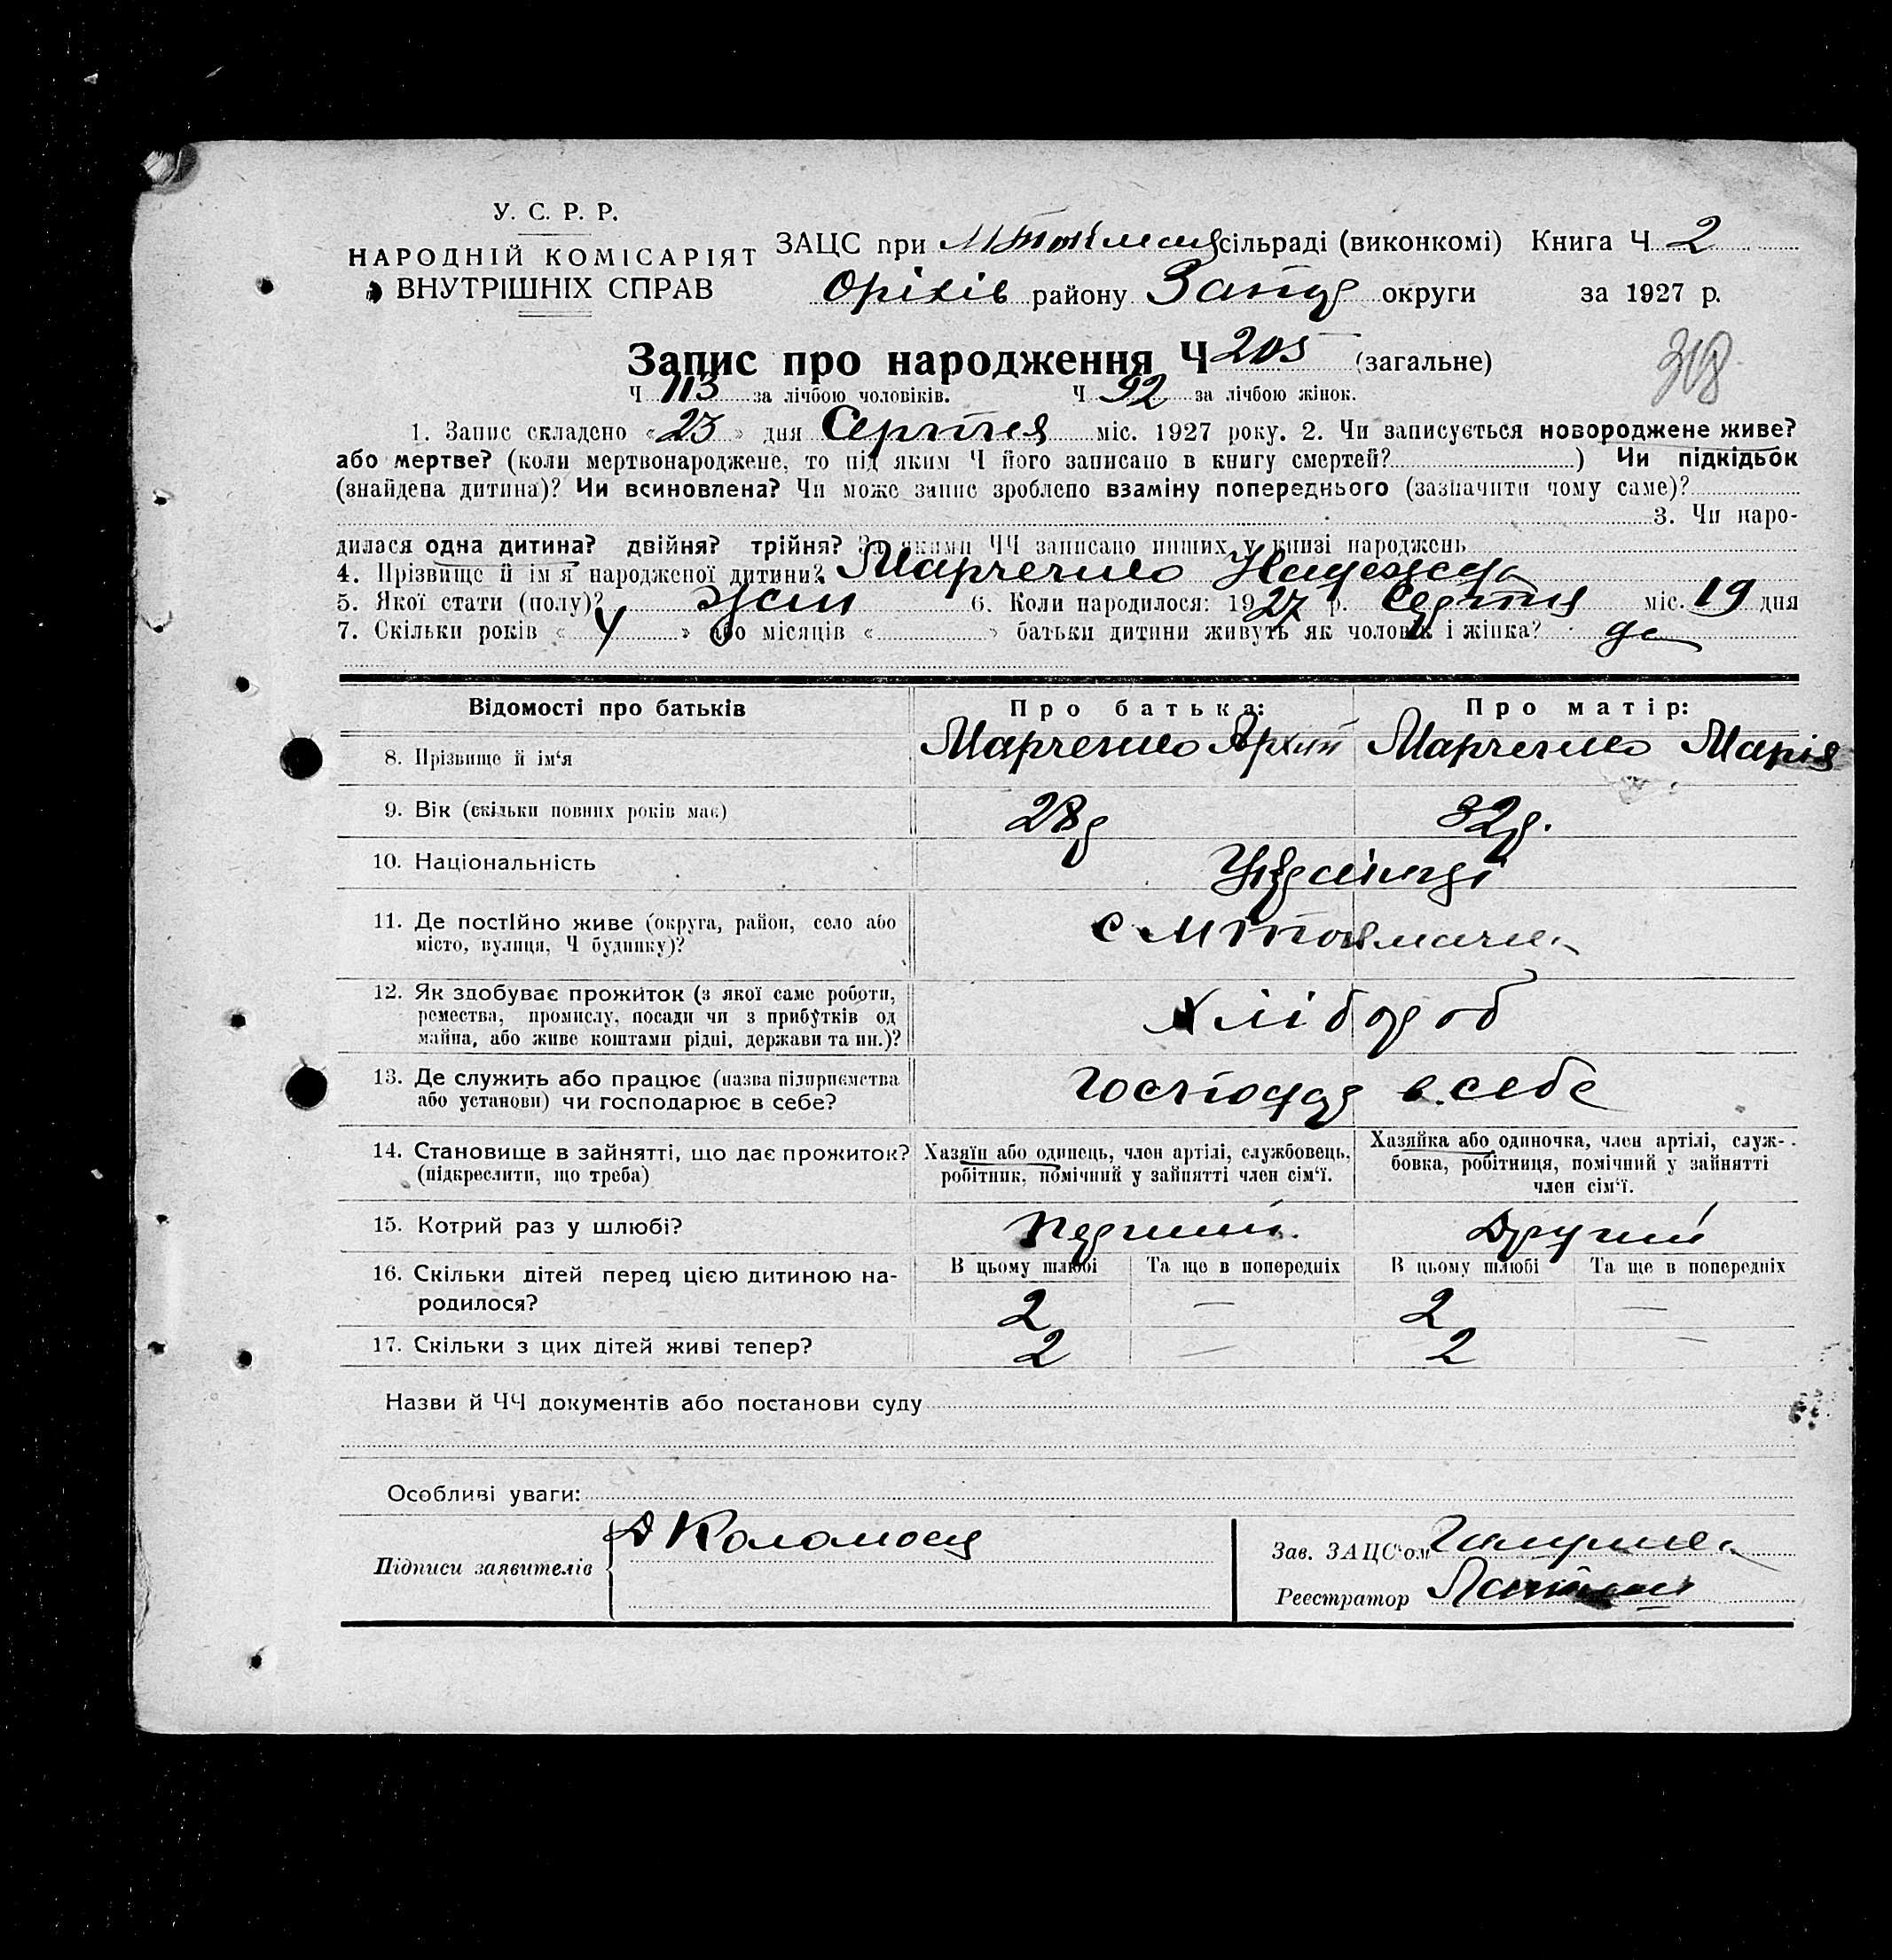 У. С. Р. Р.
НАРОДНІЙ КОМІСАРІЯТ
ВНУТРІШНІХ СПРАВ
ЗАЦС при сільраді (виконкомі) Книга Ч 2
Оріхів району Запор округи за 1927 р.
Запис про народження Ч 205 (загальне)
318
Ч 113 за лічбою чоловіків. Ч 92 за лічбою жінок.
1. Запис складено «23» дня Серпня міс. 1927 року. 2. Чи записується новороджене живе?
або мертве? (коли мертвонароджене, то під яким Ч його записано в книгу смертей? ) Чи підкідьок
(знайдена дитина)? Чи всиновлена? Чи може запис зроблено взаміну попереднього (зазначити чому саме)?
3. Чи наро-
дилася одна дитина? двійня? трійня? За якими ЧЧ записано инших у книзі народжень
4. Прізвище й ім'я народженої дитини? Марченко Надежда
5. Якої стати (полу)? жін 6. Коли народилося: 1927 р. Серпня міс. 19 дня
7. Скільки років « 4 » або місяців « » батьки дитини живуть як чоловік і жінка? да
Відомості про батьків Про батька: Про матір:
8. Прізвище й ім'я Марченко Архип Марченко Марія
9. Вік (скільки повних років має) 28 р 32 р.
10. Національність Українці
11. Де постійно живе (округа, район, село або
місто, вулиця, Ч будинку)? с
12. Як здобуває прожиток (з якої саме роботи,
ремества, промислу, посади чи з прибутків од
майна, або живе коштами рідні, держави та ин.)? Хлібороб
13. Де служить або працює (назва підприємства
або установи) чи господарює в себе? господар в себе
14. Становище в зайнятті, що дає прожиток?
(підкреслити, що треба)
Хазяїн або одинець, член артілі, службовець,
робітник, помічний у зайнятті член сім'ї.
Хазяйка або одиночка, член артілі, служ-
бовка, робітниця, помічний у зайнятті
член сім'ї.
15. Котрий раз у шлюбі? Перший. Другий
16. Скільки дітей перед цією дитиною на-
родилося?
В цьому шлюбі Та ще в попередніх В цьому шлюбі Та ще в попередніх
2 — 2 —
17. Скільки з цих дітей живі тепер? 2 — 2 —
Назви й ЧЧ документів або постанови суду
Особливі уваги:
Підписи заявителів Д Коломоец
Зав. ЗАЦС'ом
Реєстратор